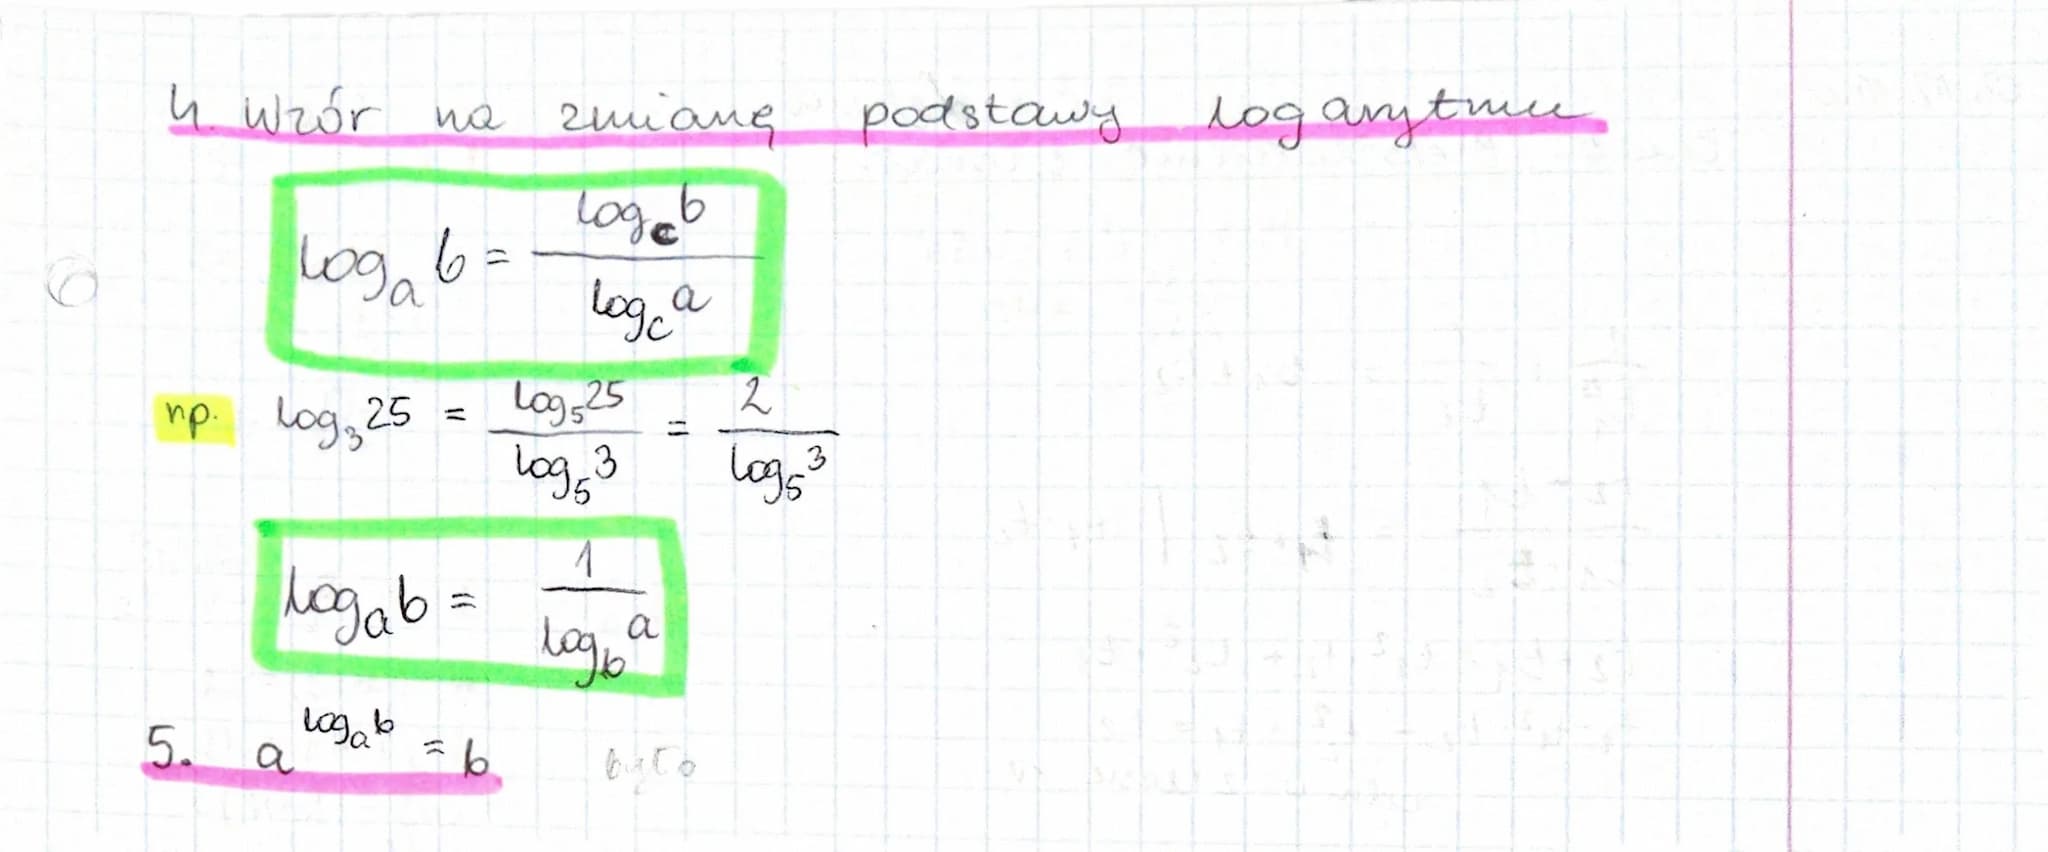 4. Wzór na zmianę podstawy logarytmu
log_a b = \frac{log_c b}{log_c a}
np. log_3 25 = \frac{log_5 25}{log_5 3} = \frac{2}{log_5 3}
log_a b = \frac{1}{log_b a}
5. a^{log_a b} = b było